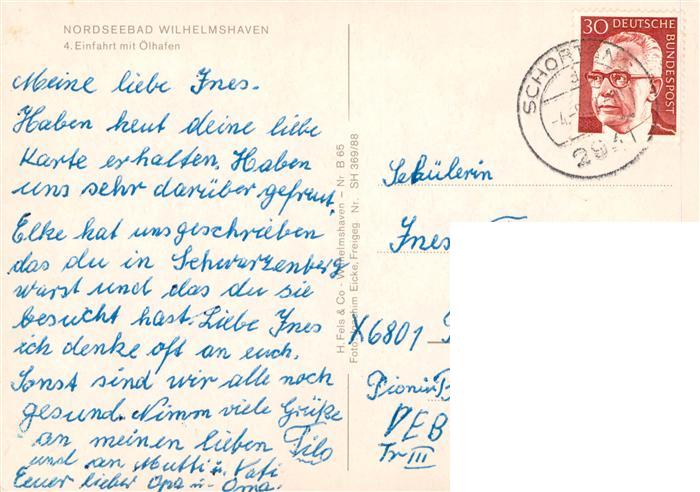 NORDSEEBAD WILHELMSHAVEN
4. Einfahrt mit Ölhafen
Meine liebe Ines.
Haben heut deine liebe
Karte erhalten. Haben
uns sehr darüber gefreut.
Elke hat uns geschrieben
das du in Schwarzenberg
warst und das du sie
besucht hast. Liebe Ines
ich denke oft an euch.
Sonst sind wir alle noch
gesund. Nimm viele Grüße
an meinen lieben Tilo
und an Mutti u. Vati
Euer lieber Opa u. Oma.
H. Fels & Co - Wilhelmshaven - Nr B 65
Foto: Joachim Eicke, Freigeg Nr. SH 369/88
30 DEUTSCHE BUNDESPOST
SCHORTENS
Schülerin
Ines
X6801
Pionier
VEB
Tr III